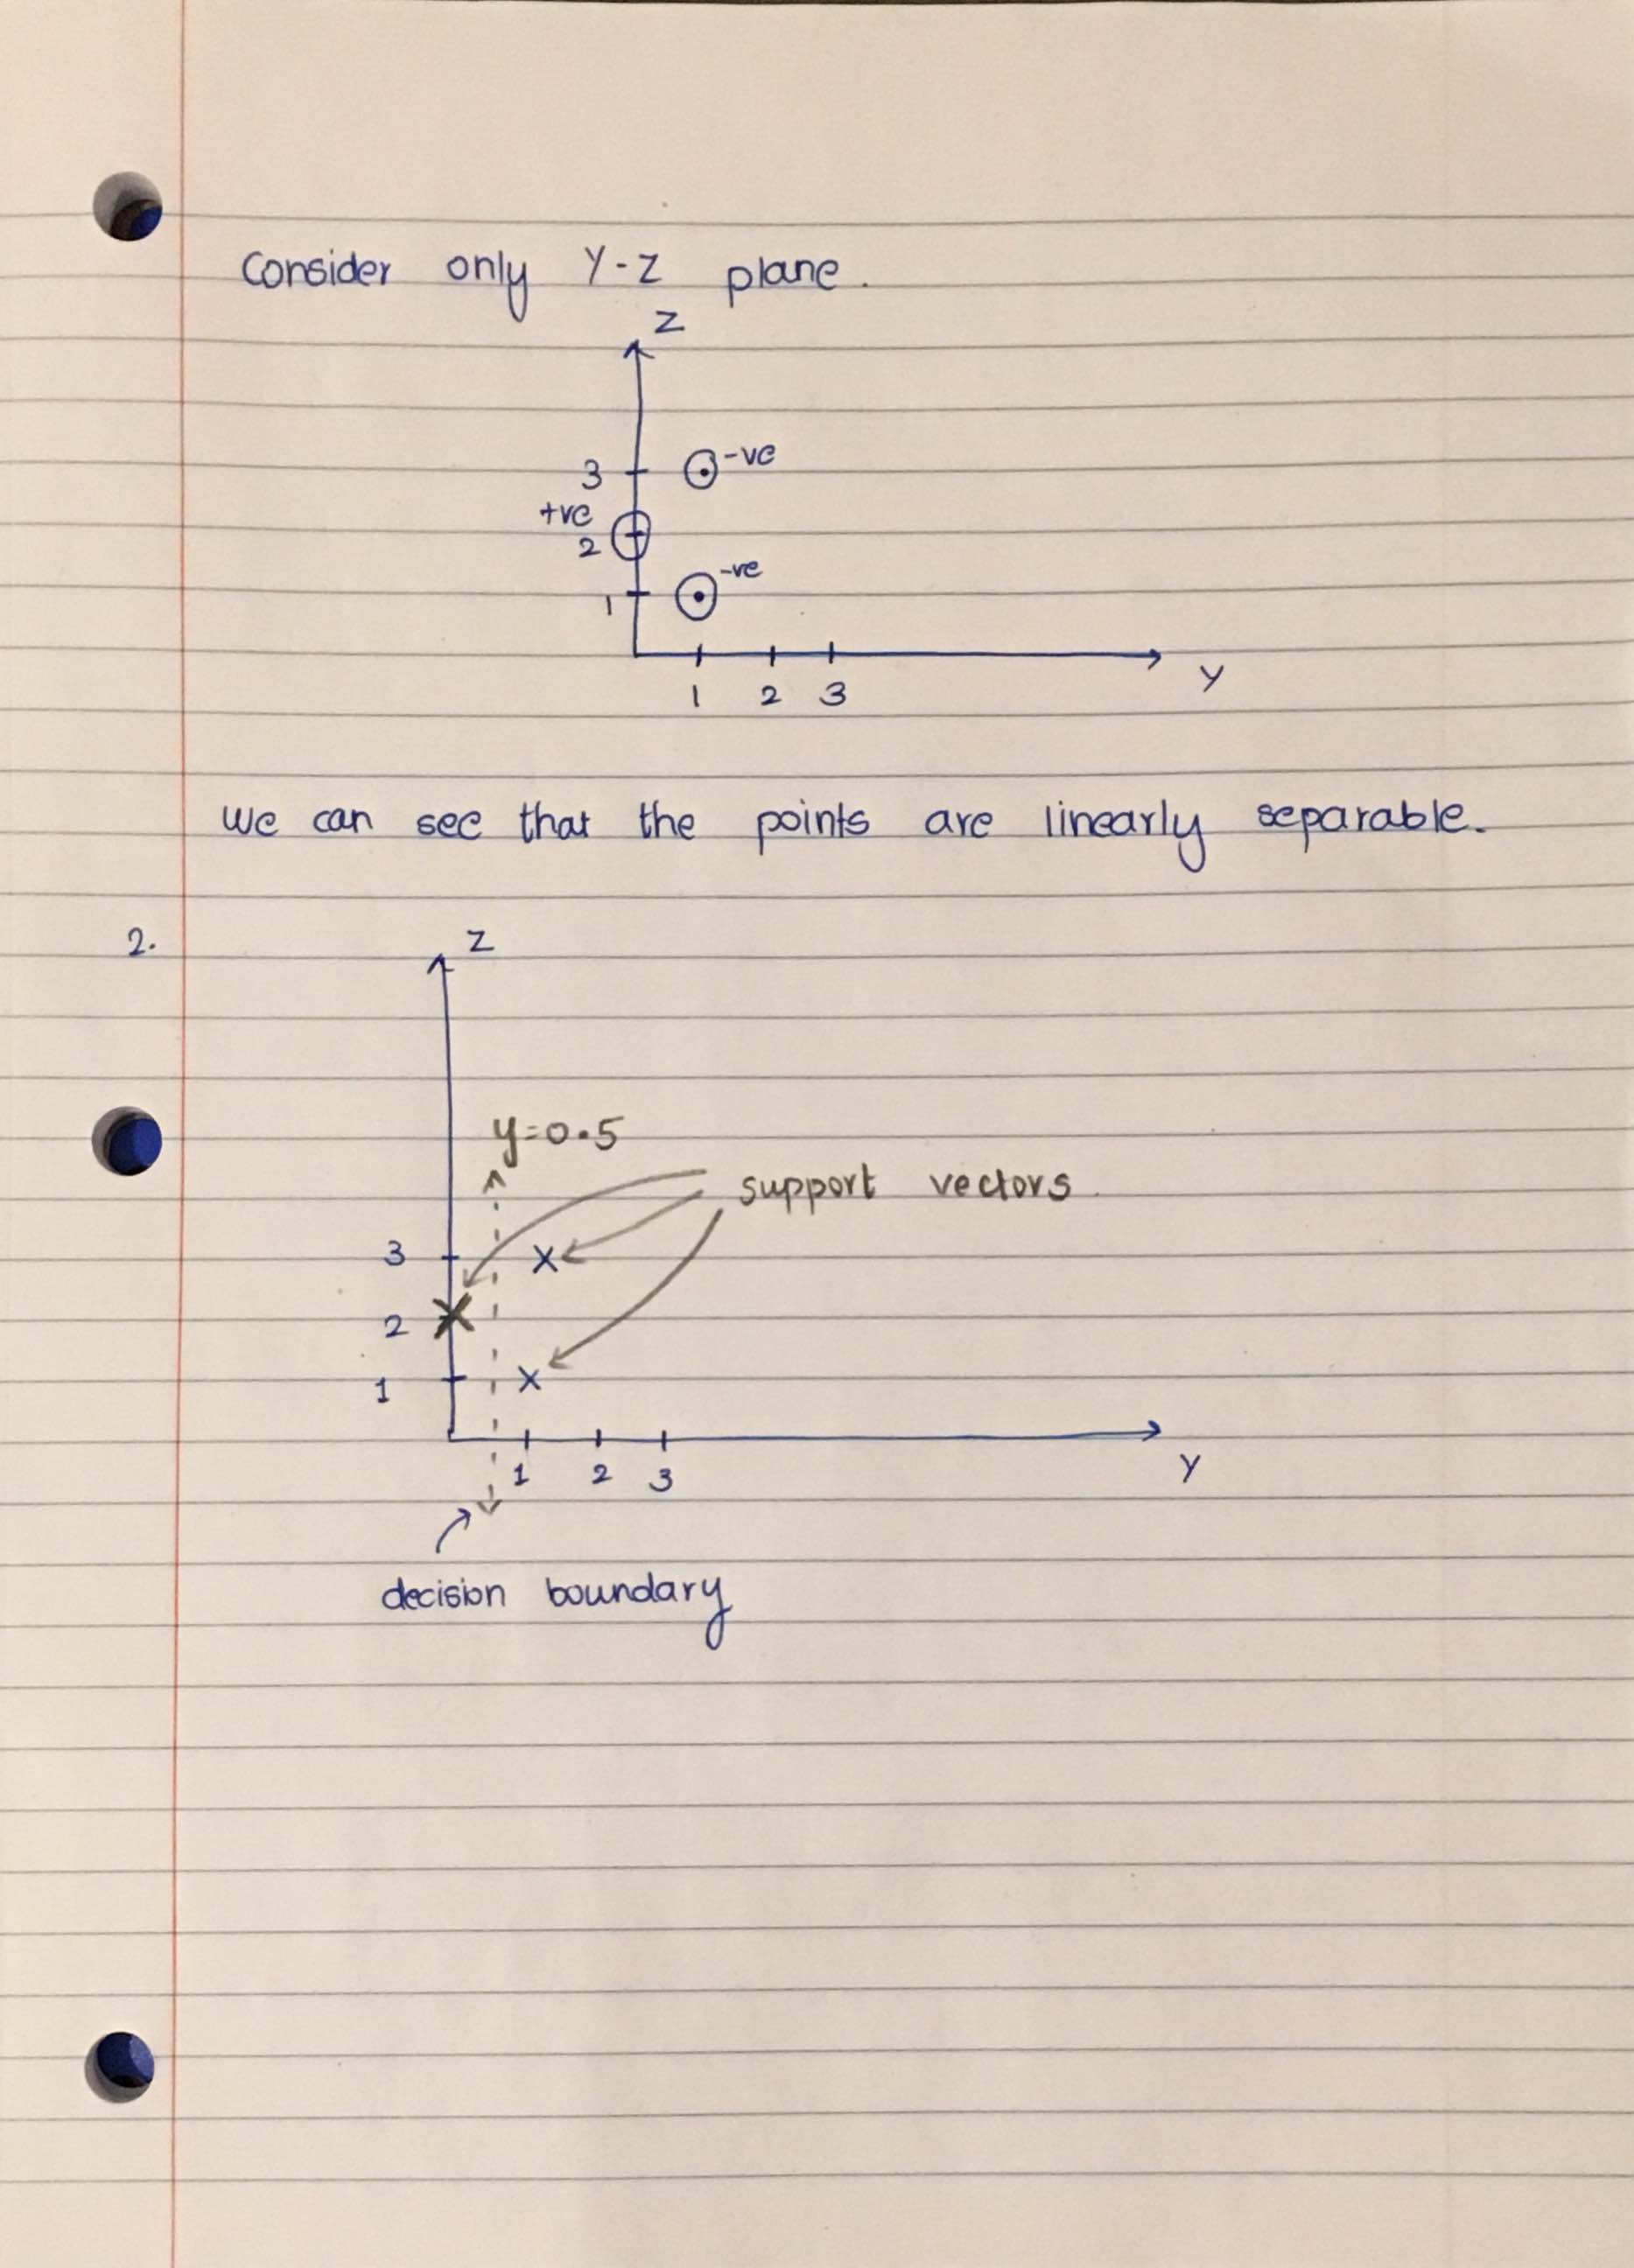 Consider only Y-Z plane.
Z
3
-ve
+ve
2
-ve
1
1 2 3
Y
We can see that the points are linearly separable.
2.
Z
y=0.5
support vectors
3
2
1
1 2 3
Y
decision boundary